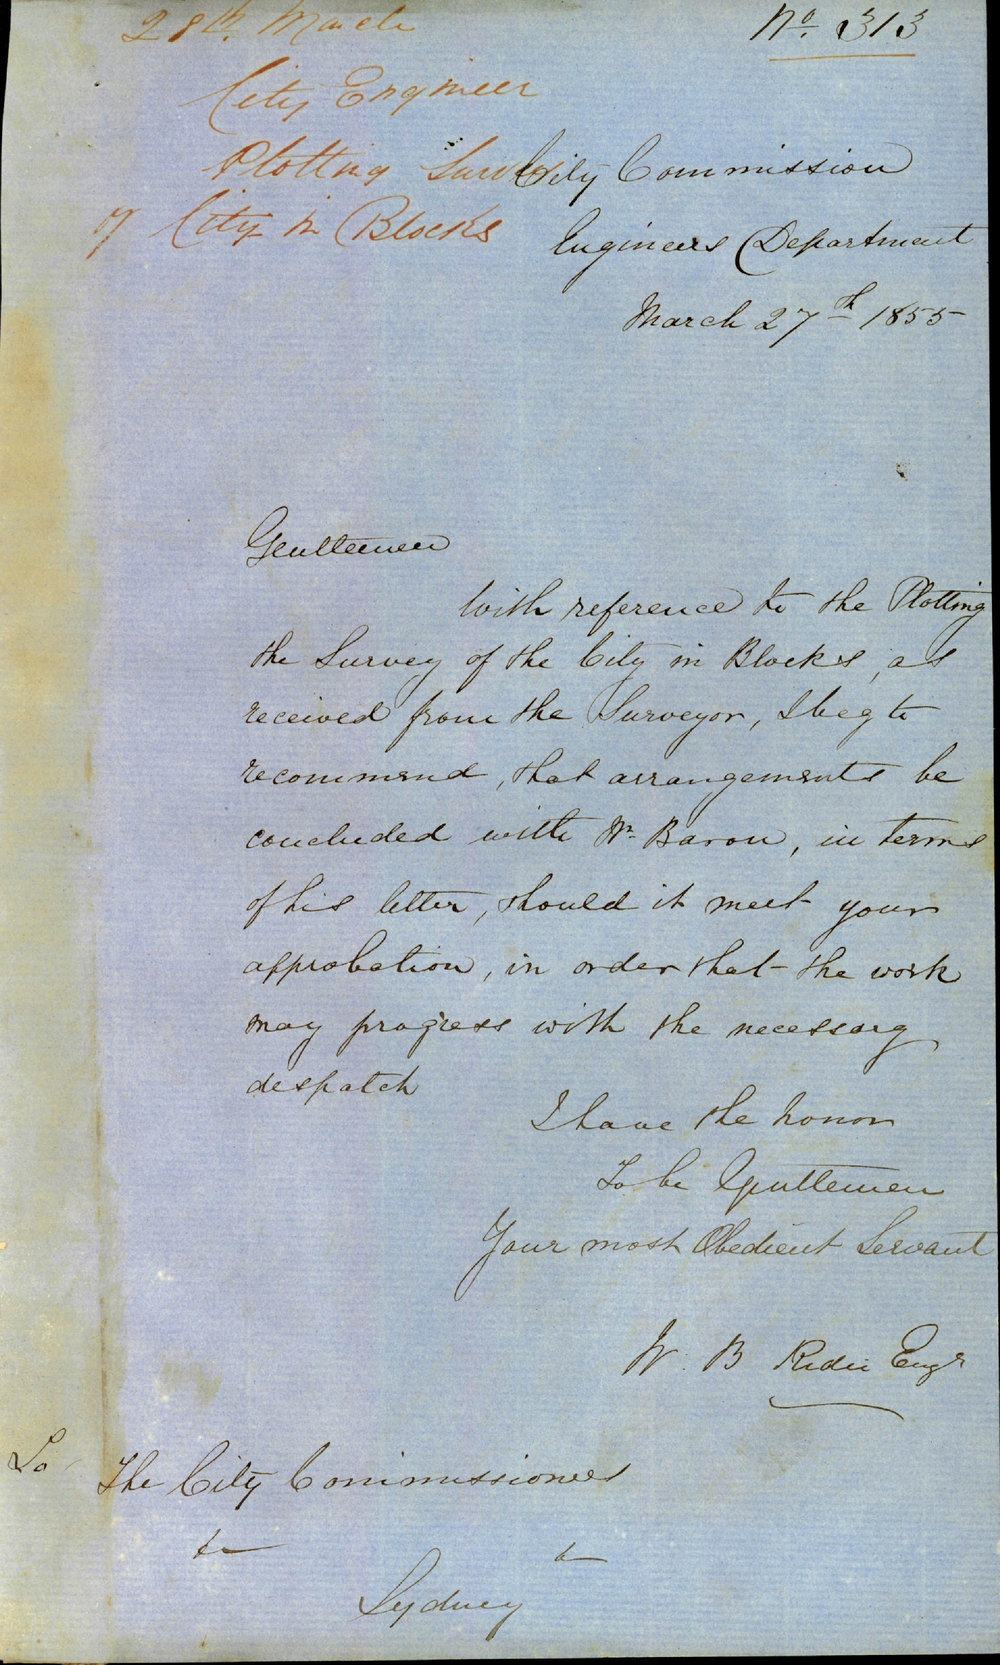 28th March
No. 313
City Engineer
Plotting Survey
of City in Blocks
City Commission
Engineers Department
March 27th 1855
Gentlemen
With reference to the Plotting
the Survey of the City in Blocks, as
received from the Surveyor, I beg to
recommend, that arrangements be
concluded with Mr. Baron, in terms
of his letter, should it meet your
approbation, in order that the work
may progress with the necessary
despatch
I have the honor
To be Gentlemen
Your most Obedient Servant
W. B Rider Engr
To
The City Commissioners
&c &c
Sydney